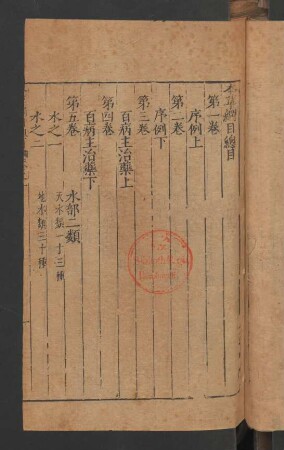 本草綱目總目
第一卷
序例上
第二卷
序例下
第三卷
百病主治藥上
第四卷
百病主治藥下
第五卷
水部二類
水之一
天水類一十三種
水之二
地水類三十種